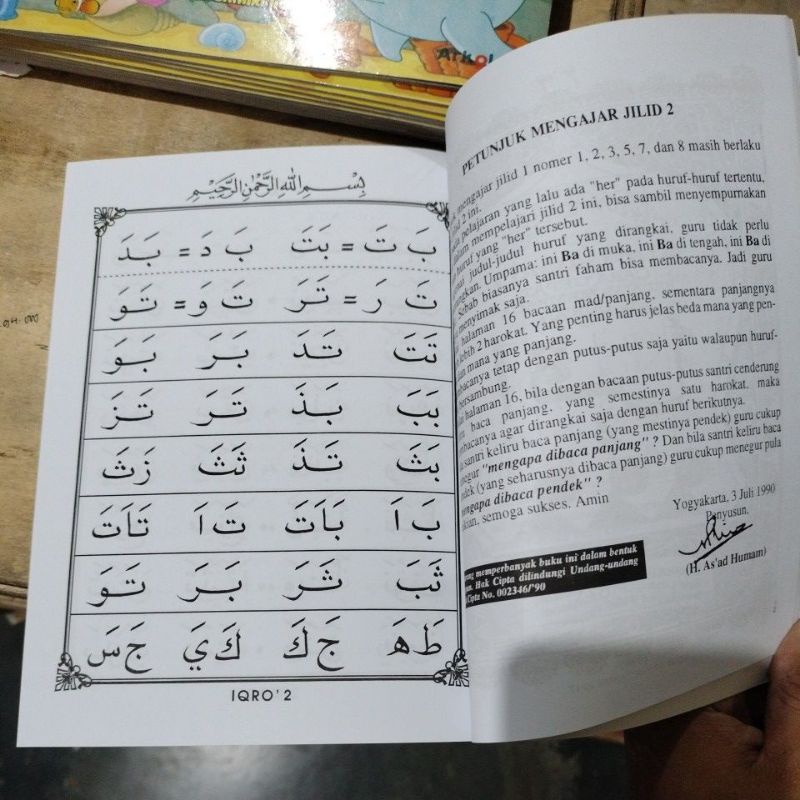 Arkol
PETUNJUK MENGAJAR JILID 2
mengajar jilid 1 nomer 1, 2, 3, 5, 7, dan 8 masih berlaku
jilid 2 ini.
pelajaran yang lalu ada "her" pada huruf-huruf tertentu,
mempelajari jilid 2 ini, bisa sambil menyempurnakan
huruf yang "her" tersebut.
judul-judul huruf yang dirangkai, guru tidak perlu
Umpama: ini Ba di muka, ini Ba di tengah, ini Ba di
Sebab biasanya santri faham bisa membacanya. Jadi guru
menyimak saja.
halaman 16 bacaan mad/panjang, sementara panjangnya
lebih 2 harokat. Yang penting harus jelas beda mana yang pen-
dan mana yang panjang.
tetap dengan putus-putus saja yaitu walaupun huruf-
bersambung.
halaman 16, bila dengan bacaan putus-putus santri cenderung
baca panjang, yang semestinya satu harokat, maka
agar dirangkai saja dengan huruf berikutnya.
santri keliru baca panjang (yang mestinya pendek) guru cukup
"mengapa dibaca panjang" ? Dan bila santri keliru baca
(yang seharusnya dibaca panjang) guru cukup menegur pula
dibaca pendek" ?
semoga sukses. Amin
Yogyakarta, 3 Juli 1990
Penyusun,
(H. As'ad Humam)
memperbanyak buku ini dalam bentuk
Hak Cipta dilindungi Undang-undang
Cipta No. 002346/'90
بِسْمِ اللهِ الرَّحْمٰنِ الرَّحِيْمِ
بَ تَ = بَتَ بَ دَ = بَدَ
تَ رَ = تَرَ تَ وَ = تَوَ
تَتَ تَدَ بَرَ بَوَ
بَبَ بَذَ تَرَ تَزَ
بَثَ تَذَ ثَثَ زَثَ
بَ اَ بَاَتَ تَ اَ تَاَتَ
ثَبَ ثَرَ بَرَ تَوَ
طَ هَ جَ كَ كَ يَ جَ سَ
IQRO' 2